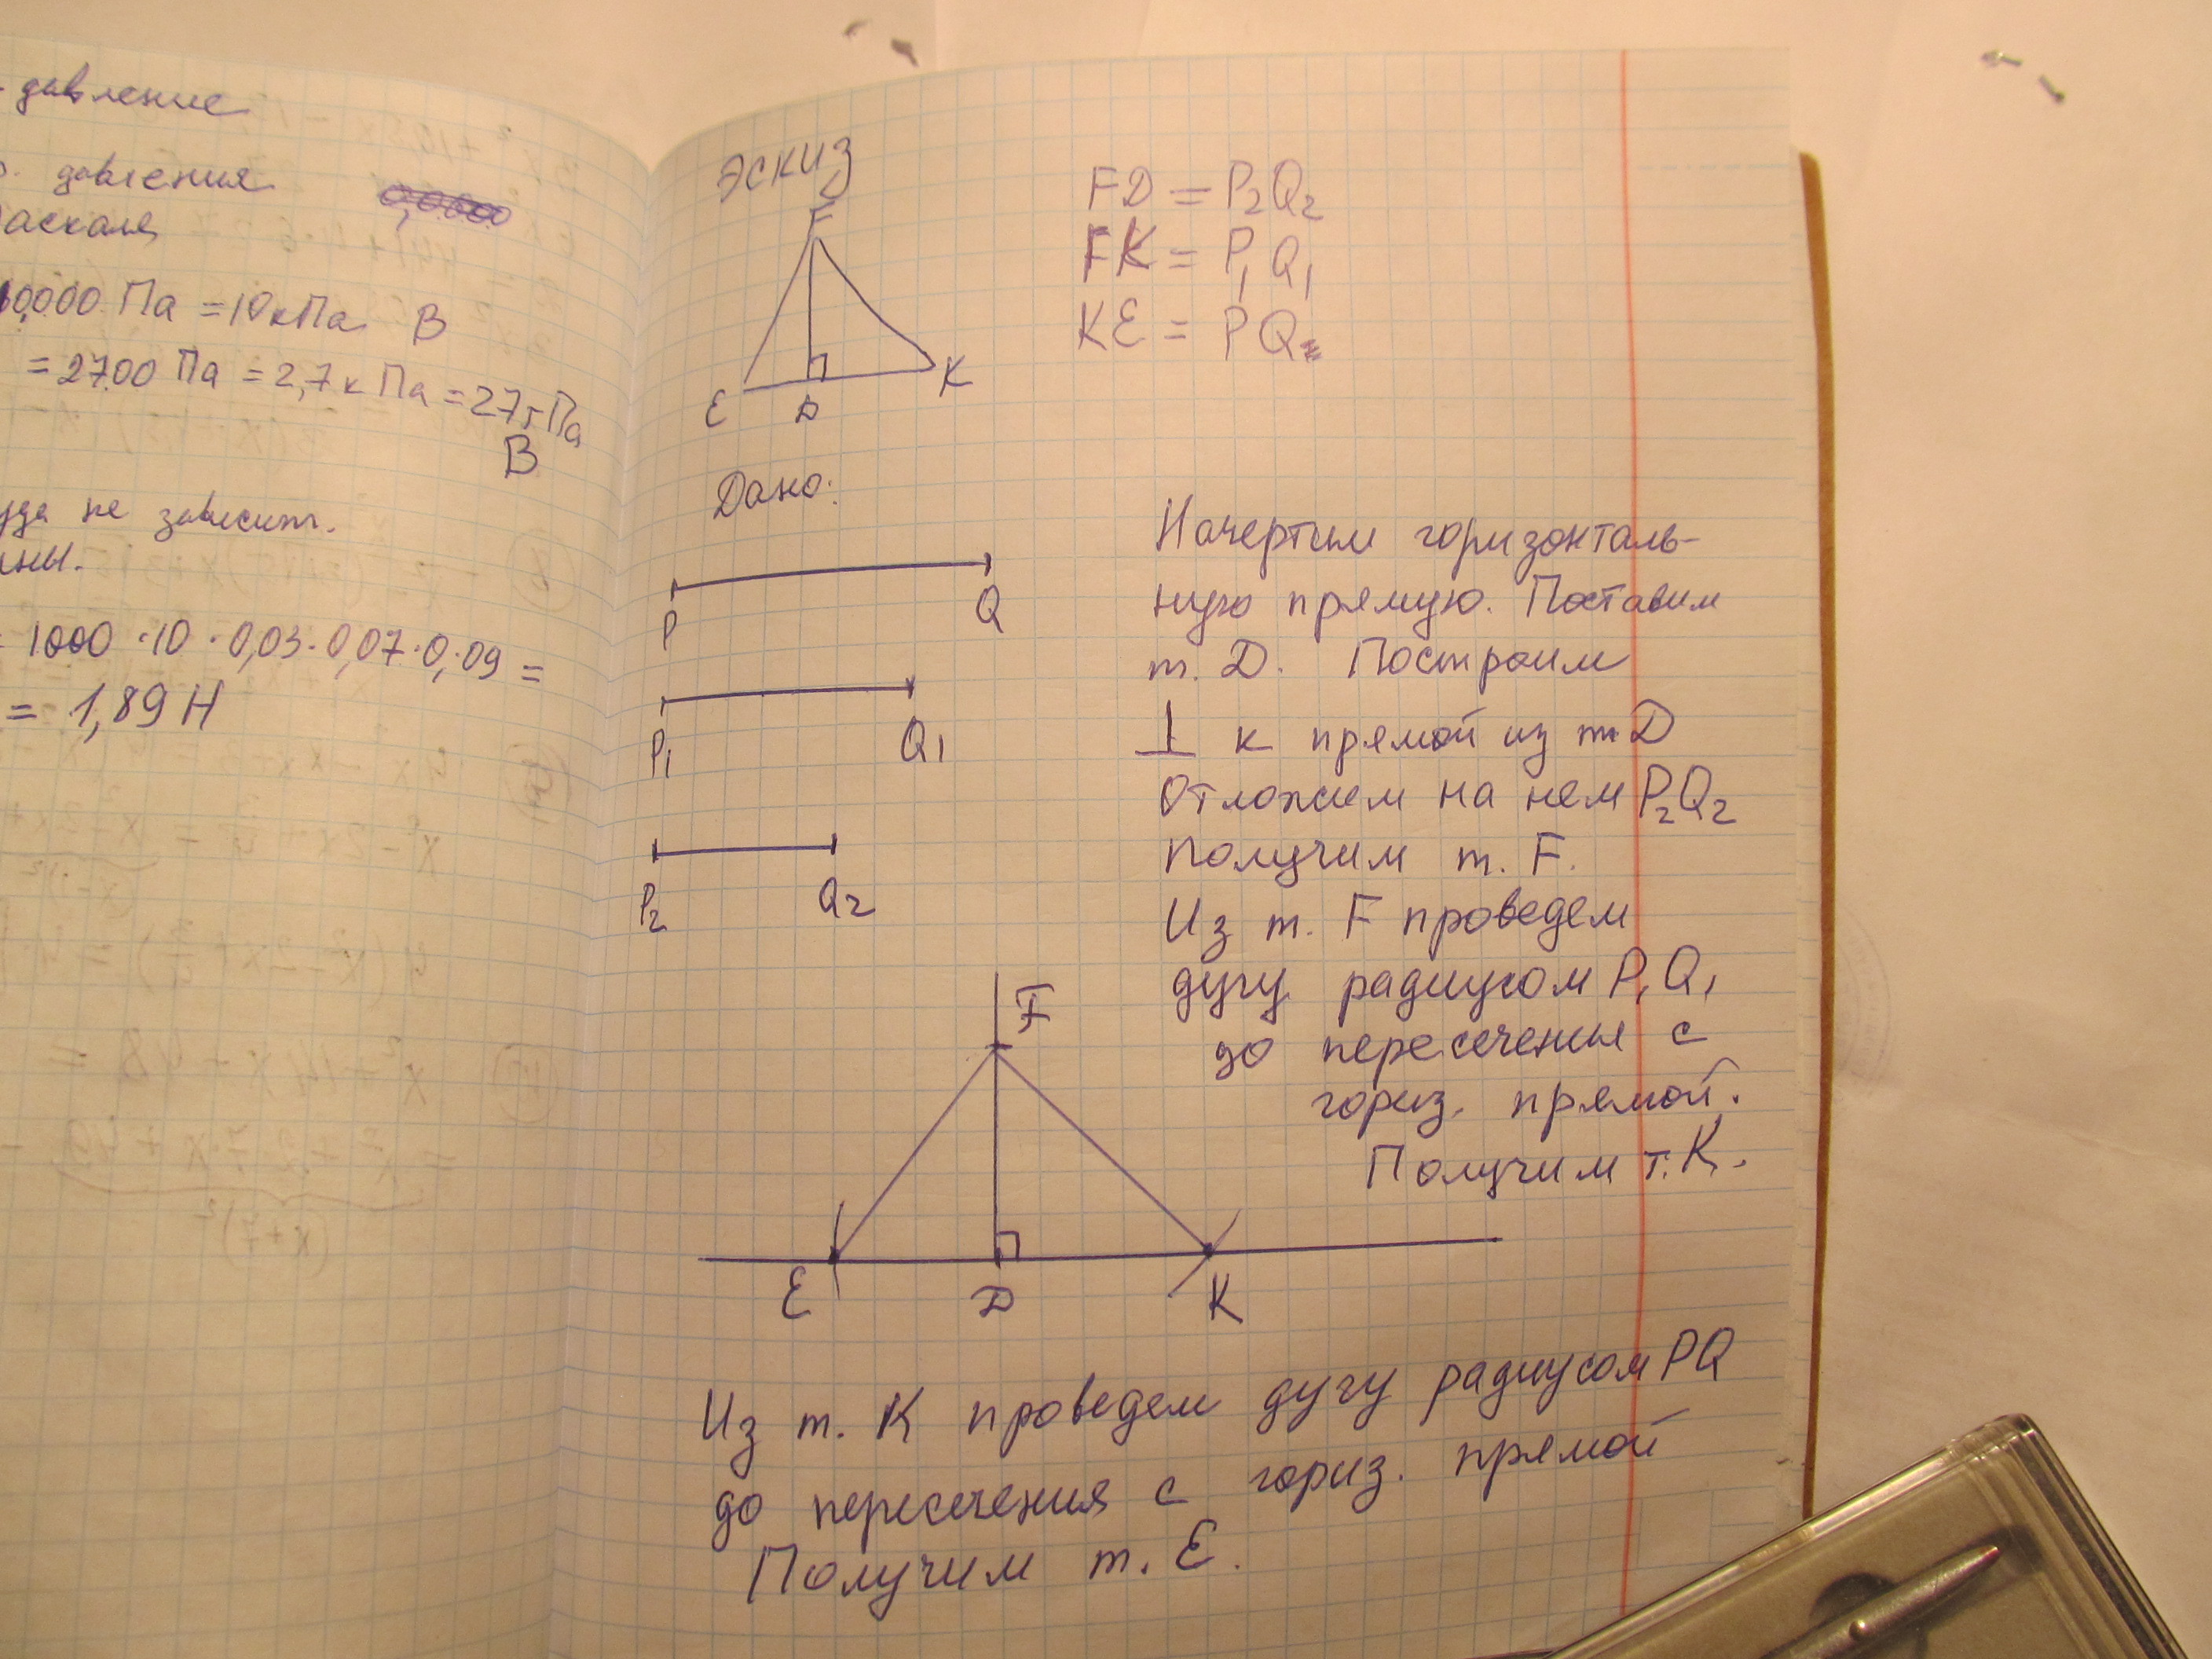 давление
давления
0,0000
10000 Па = 10 кПа В
= 2700 Па = 2,7 к Па = 27 г Па
В
не зависит.
1000 · 10 · 0,03 · 0,07 · 0,09 =
= 1,89 Н
ЭСКИЗ
F
E D K
FD = P₂Q₂
FK = P₁Q₁
KE = PQ
Дано:
P Q
P₁ Q₁
P₂ Q₂
Начертим горизонталь-
ную прямую. Поставим
т. D. Построим
⊥ к прямой из т. D
Отложим на нем P₂Q₂
Получим т. F.
Из т. F проведем
дугу радиусом P₁Q₁
до пересечения с
гориз. прямой.
Получим т. К.
F
E D K
Из т. К проведем дугу радиусом PQ
до пересечения с гориз. прямой
Получим т. E.